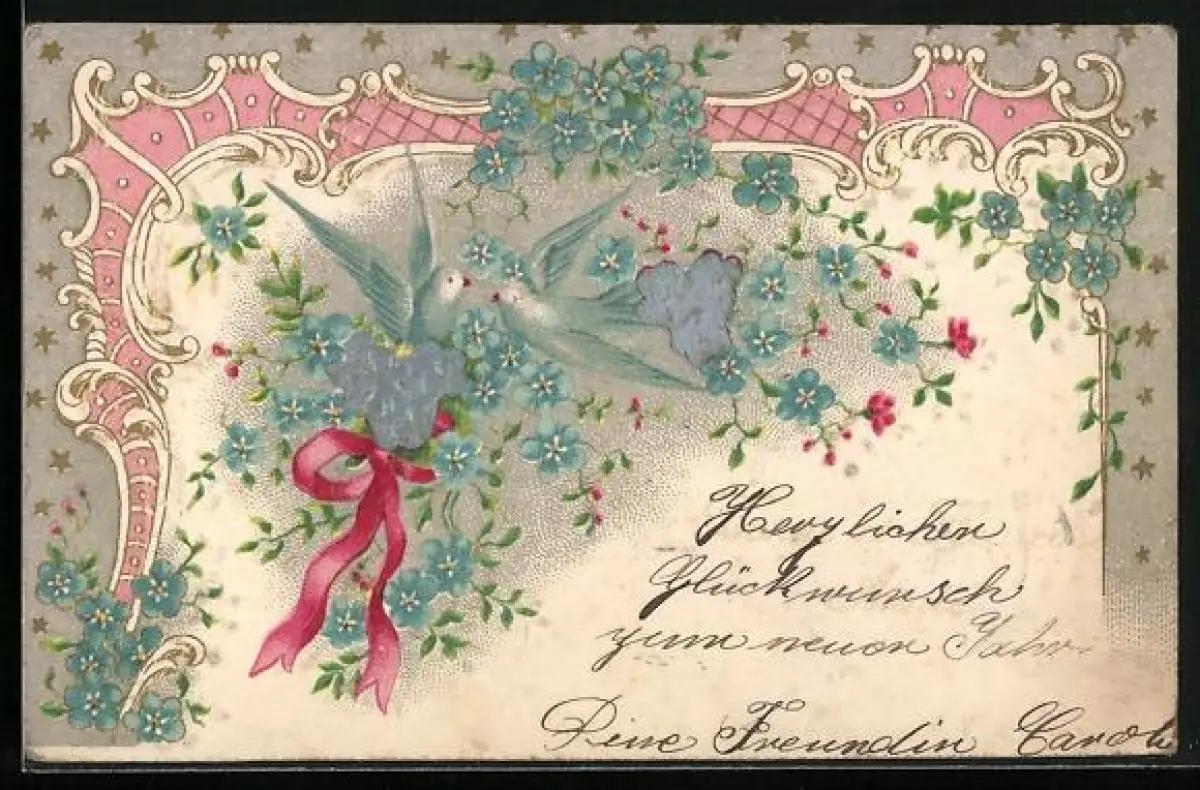 Herzlichen
Glückwunsch
zum neuen Jahr.
Deine Freundin Carola